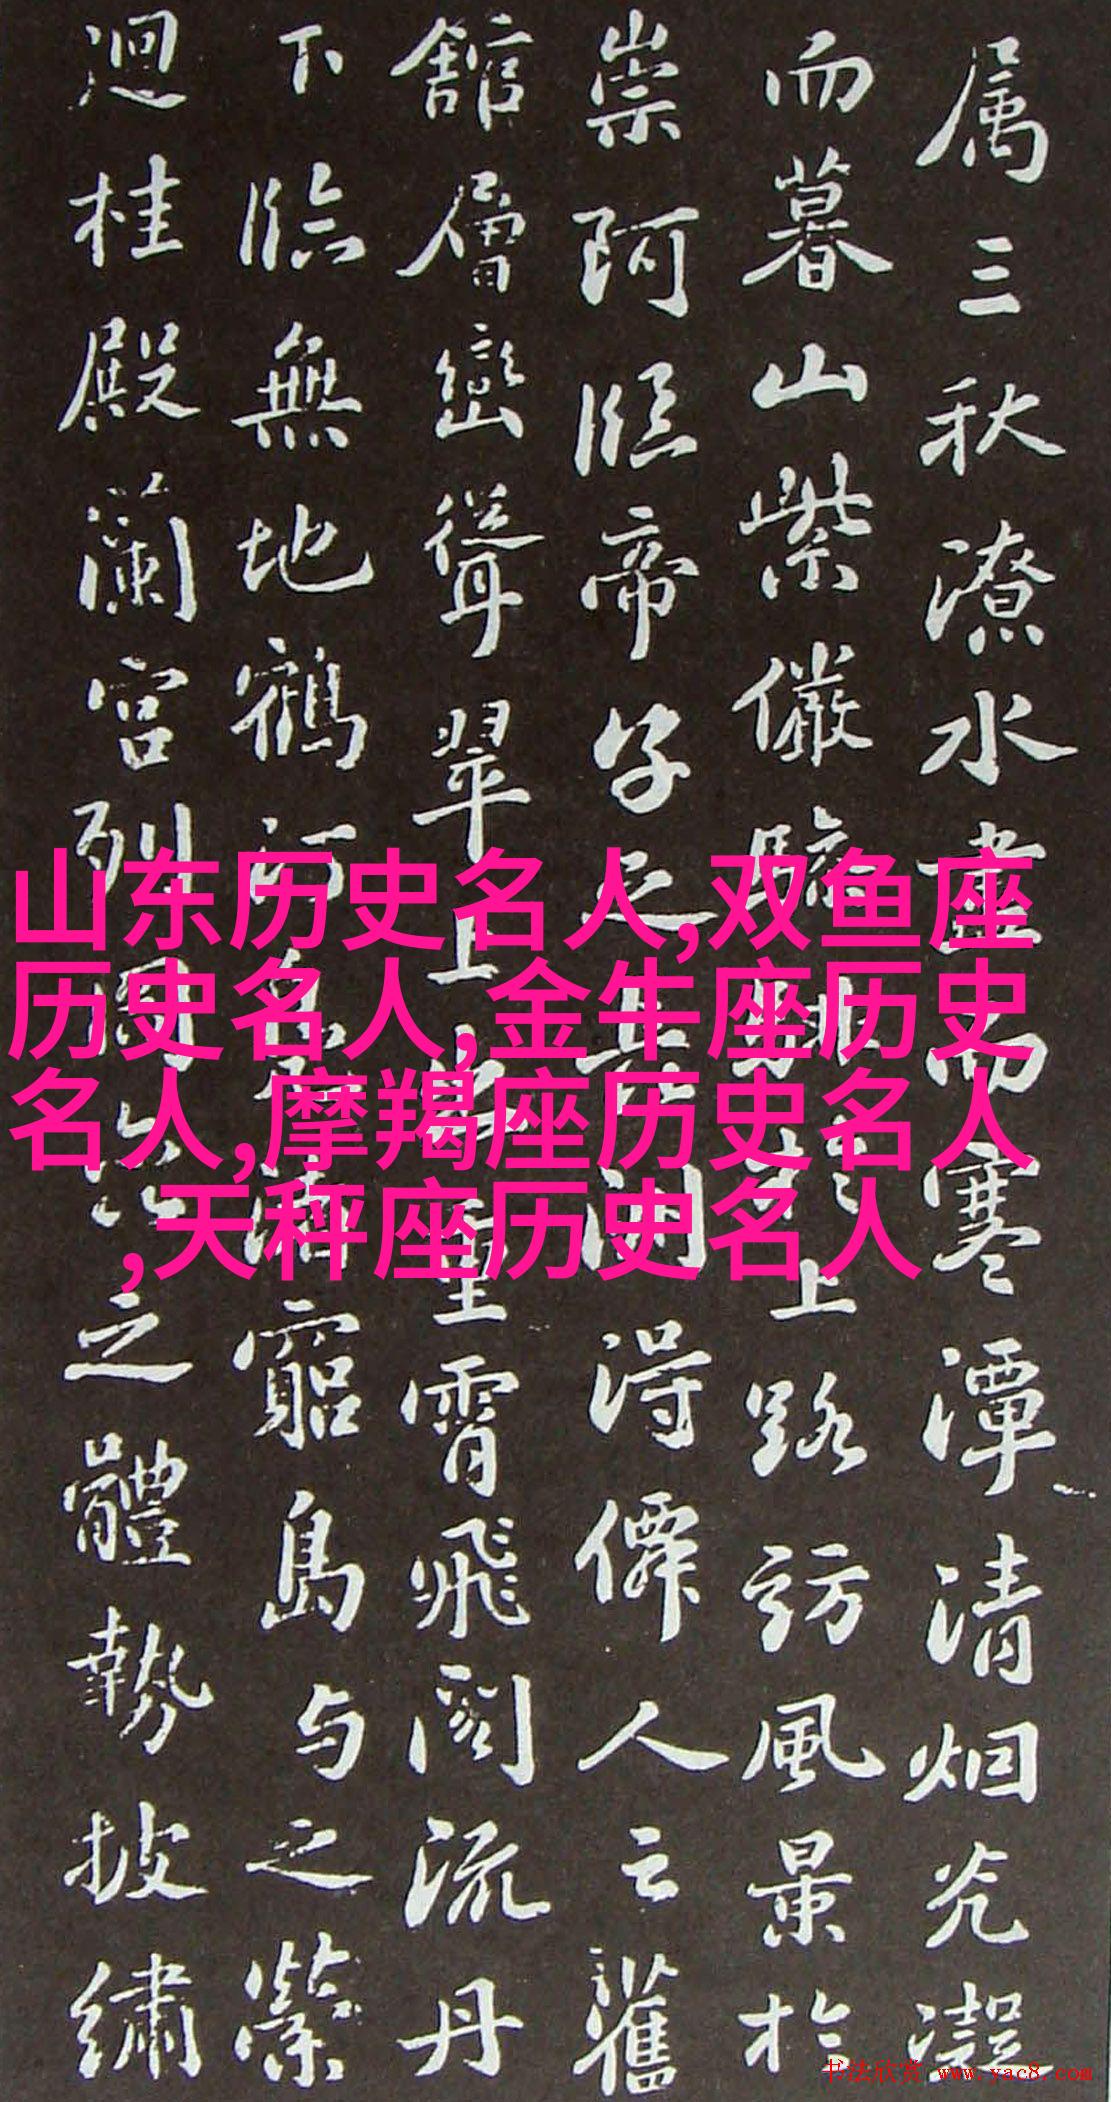 属三秋潦水盡而寒潭清烟光凝
而暮山紫儼驂騑於上路訪風景於
崇阿臨帝子之長洲得僊人之舊
館層巒聳翠上出重霄飛閣流丹
下臨無地鶴汀鳧渚窮島与之縈
迴桂殿蘭宮列岡巒之體勢披繡
山东历史名人,双鱼座
历史名人,金牛座历史
名人,摩羯座历史名人
,天秤座历史名人
书法欣赏 www.yac8.com